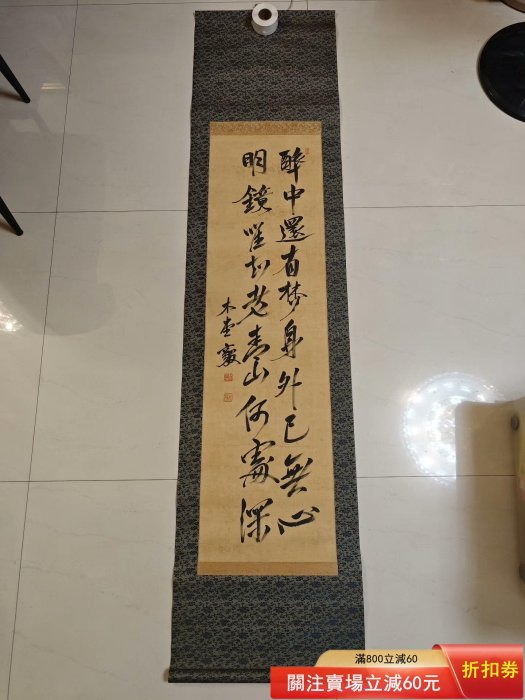 醉中還有梦身外已無心
明鏡唯知老青山何處深
木堂毅
滿800立減60
關注賣場立減60元
折扣券